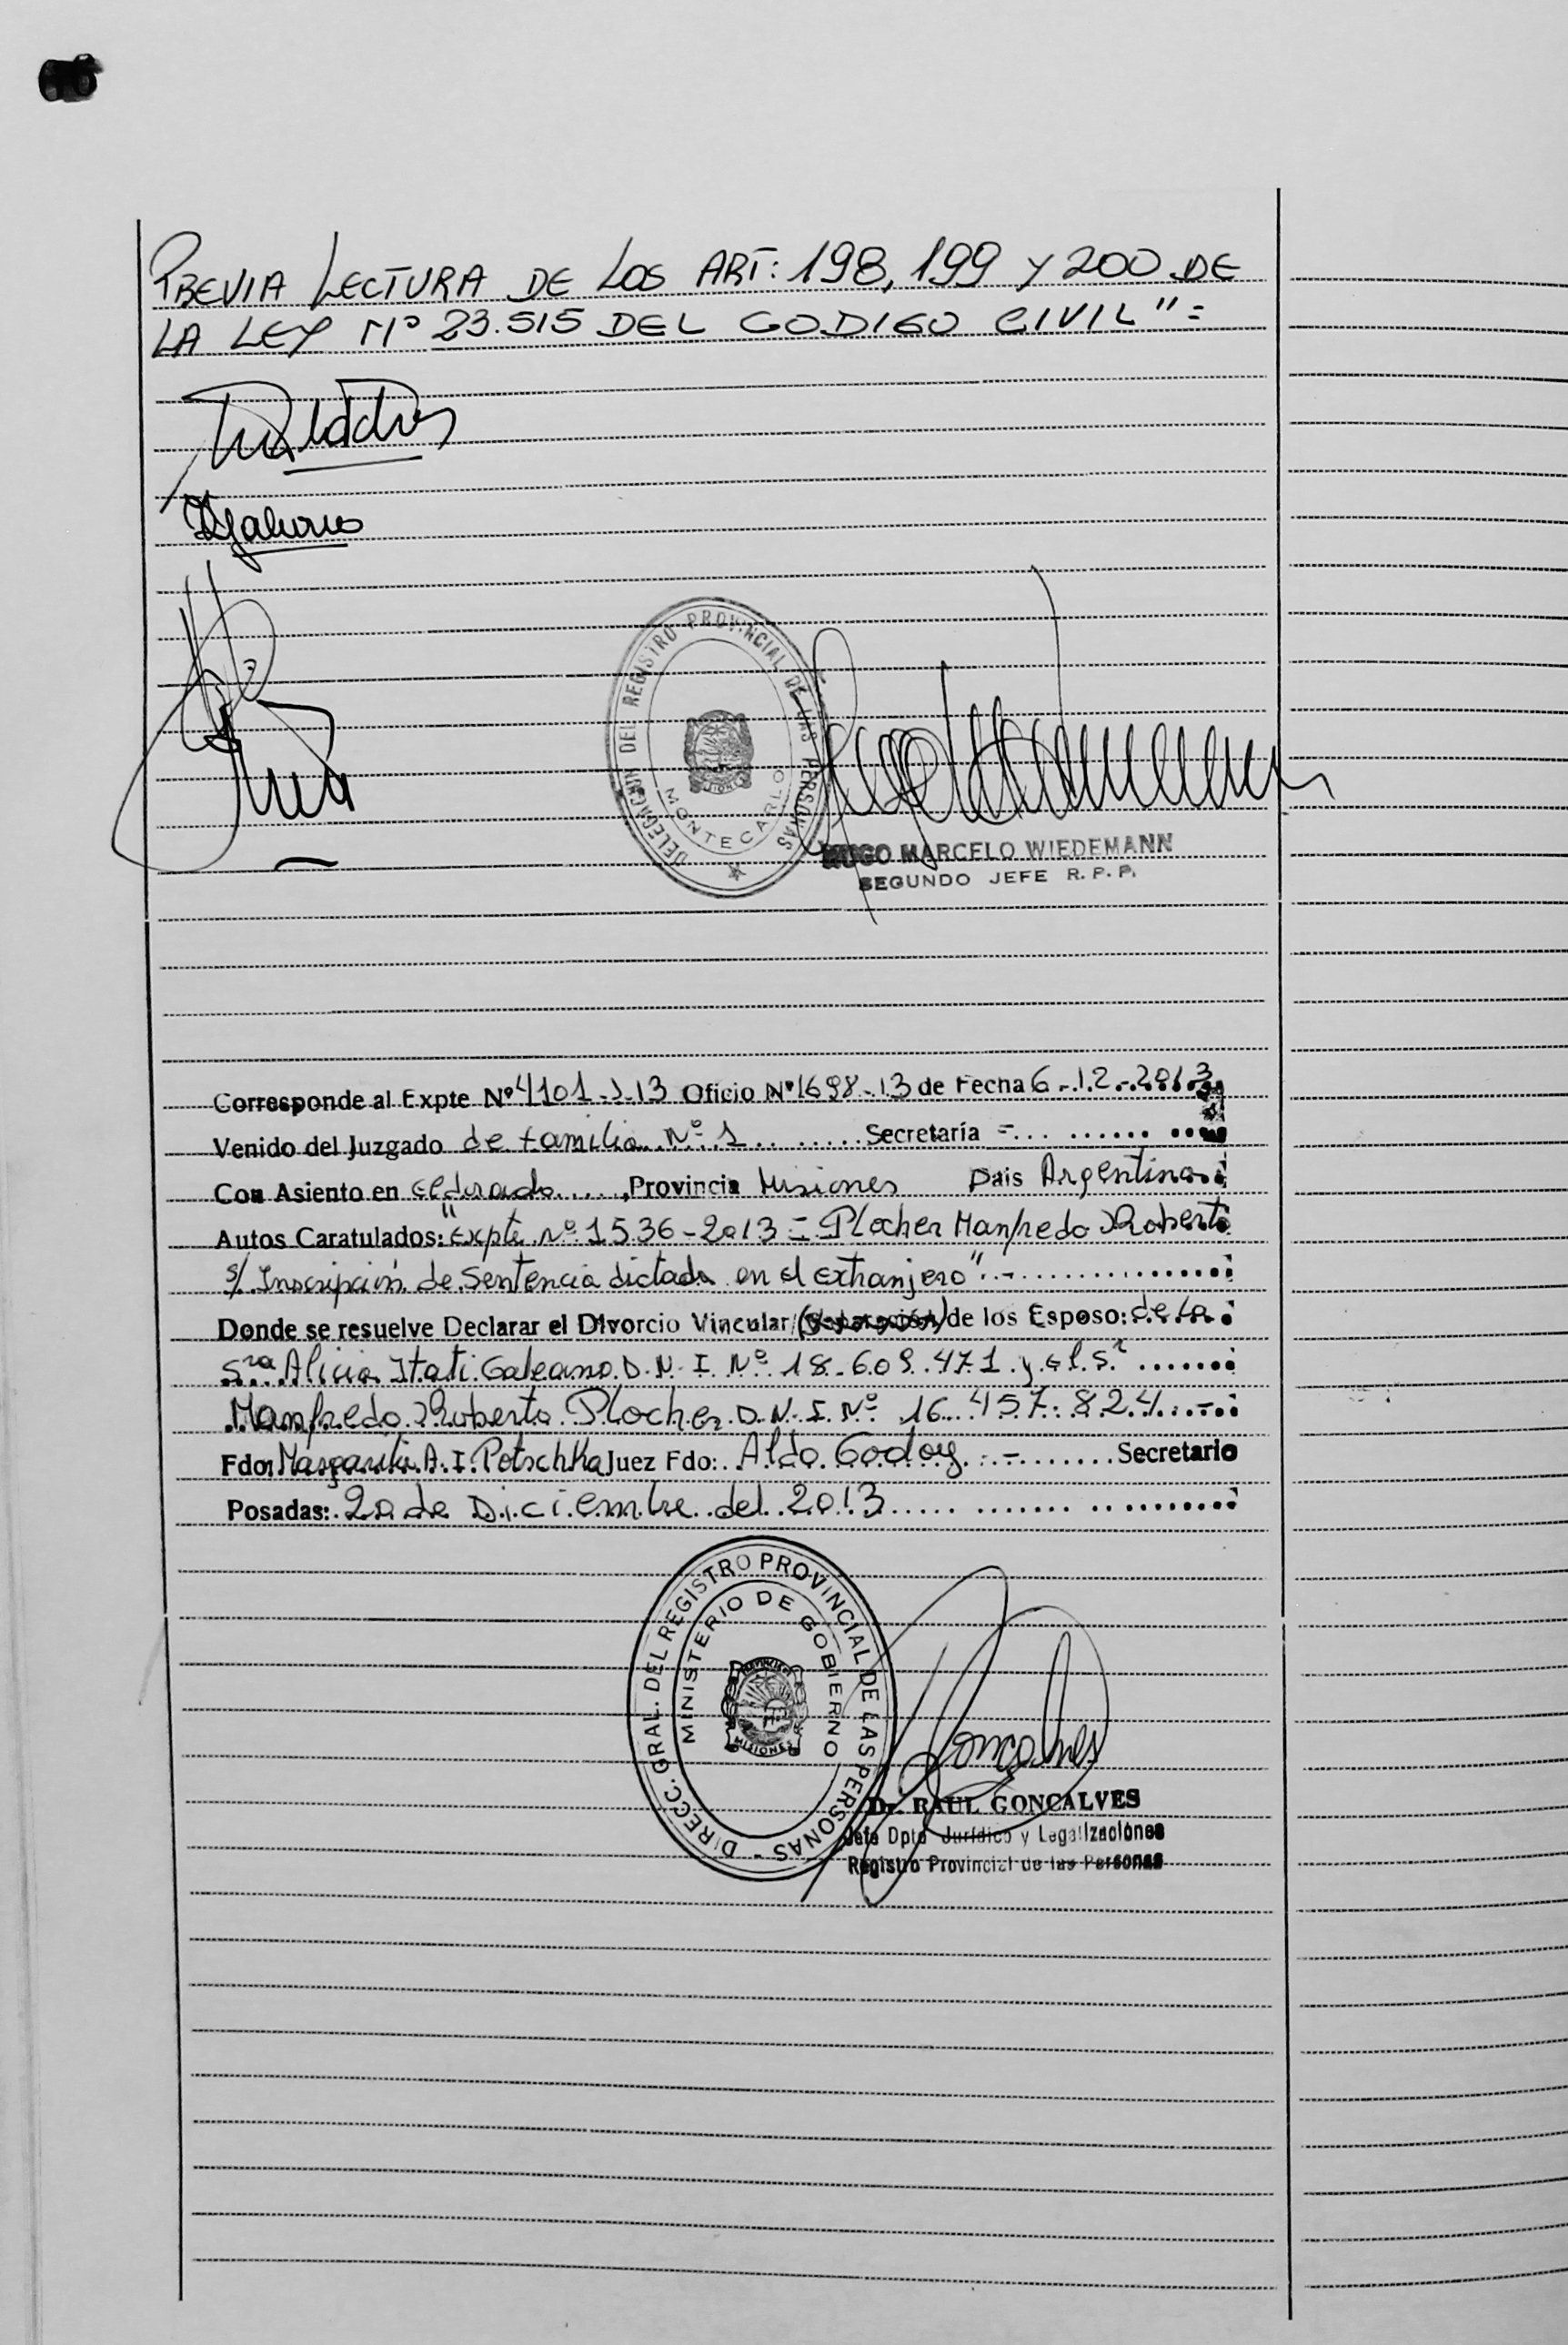 PREVIA LECTURA DE LOS ART: 198, 199 Y 200 DE
LA LEY Nº 23.515 DEL CODIGO CIVIL" =
DELEGACION DEL REGISTRO PROVINCIAL DE LAS PERSONAS
MONTECARLO
HUGO MARCELO WIEDEMANN
SEGUNDO JEFE R. P. P.
Corresponde al Expte Nº 4101-J-13 Oficio Nº 1698-13 de Fecha 6-12-2013
Venido del Juzgado de familia Nº 1 Secretaría =
Con Asiento en eldorado, Provincia Misiones Pais Argentina
Autos Caratulados: "Expte Nº 1536-2013 = Plocher Manfredo Roberto
s/ Inscripción de Sentencia dictada en el extranjero".-
Donde se resuelve Declarar el Divorcio Vincular/(Separación) de los Esposo: de la
Sra Alicia Itati Galeano D.N.I. Nº 18.609.471 y el Sr
Manfredo Roberto Plocher D.N.I. Nº 16.457.824.-
Fdo: Margarita A. I. Potschka Juez Fdo: Aldo Godoy.- Secretario
Posadas: 20 de Diciembre del 2013
DIRECC. GRAL. DEL REGISTRO PROVINCIAL DE LAS PERSONAS -
MINISTERIO DE GOBIERNO
PROVINCIA
MISIONES
Dr. RAUL GONCALVES
Jefe Dpto Jurídico y Legalizaciónes
Registro Provincial de las Personas